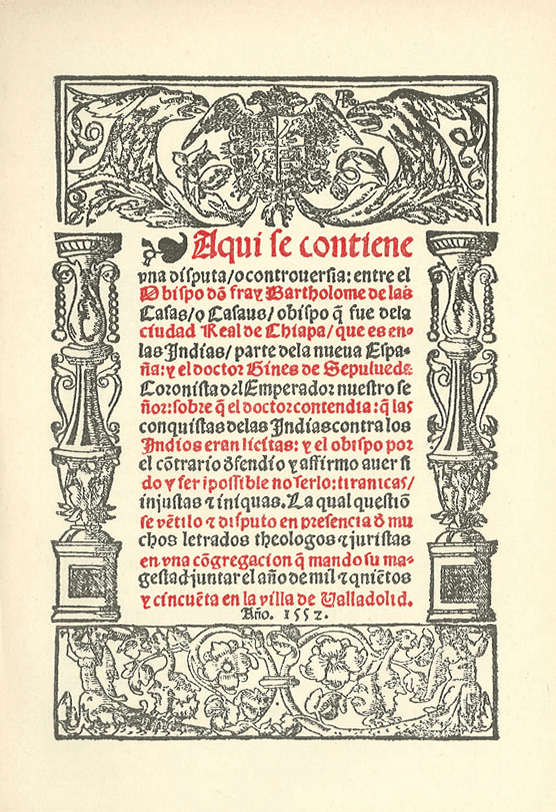 Aqui se contiene
vna disputa/o controuersia: entre el
Obispo dõ fray Bartholome de las
Casas/o Casaus/obispo q̃ fue dela
ciudad Real de Chiapa/que es en
las Indias/parte dela nueua Espa-
ña: y el doctor Gines de Sepulueda
Coronista del Emperador nuestro se
ñor: sobre q̃ el doctor contendia: q̃ las
conquistas delas Indias contra los
Indios eran licitas: y el obispo por
el cõtrario dẽfendio y affirmo auer si
do y ser ĩpossible no serlo: tiranicas/
injustas ⁊ iniquas. La qual questiõ
se vẽtilo ⁊ disputo en presencia d̃ mu
chos letrados theologos ⁊ juristas
en vna cõgregacion q̃ mando su ma-
gestad juntar el año de mil ⁊ qniẽtos
y cincuẽta en la villa de Valladolid.
Año. 1552.